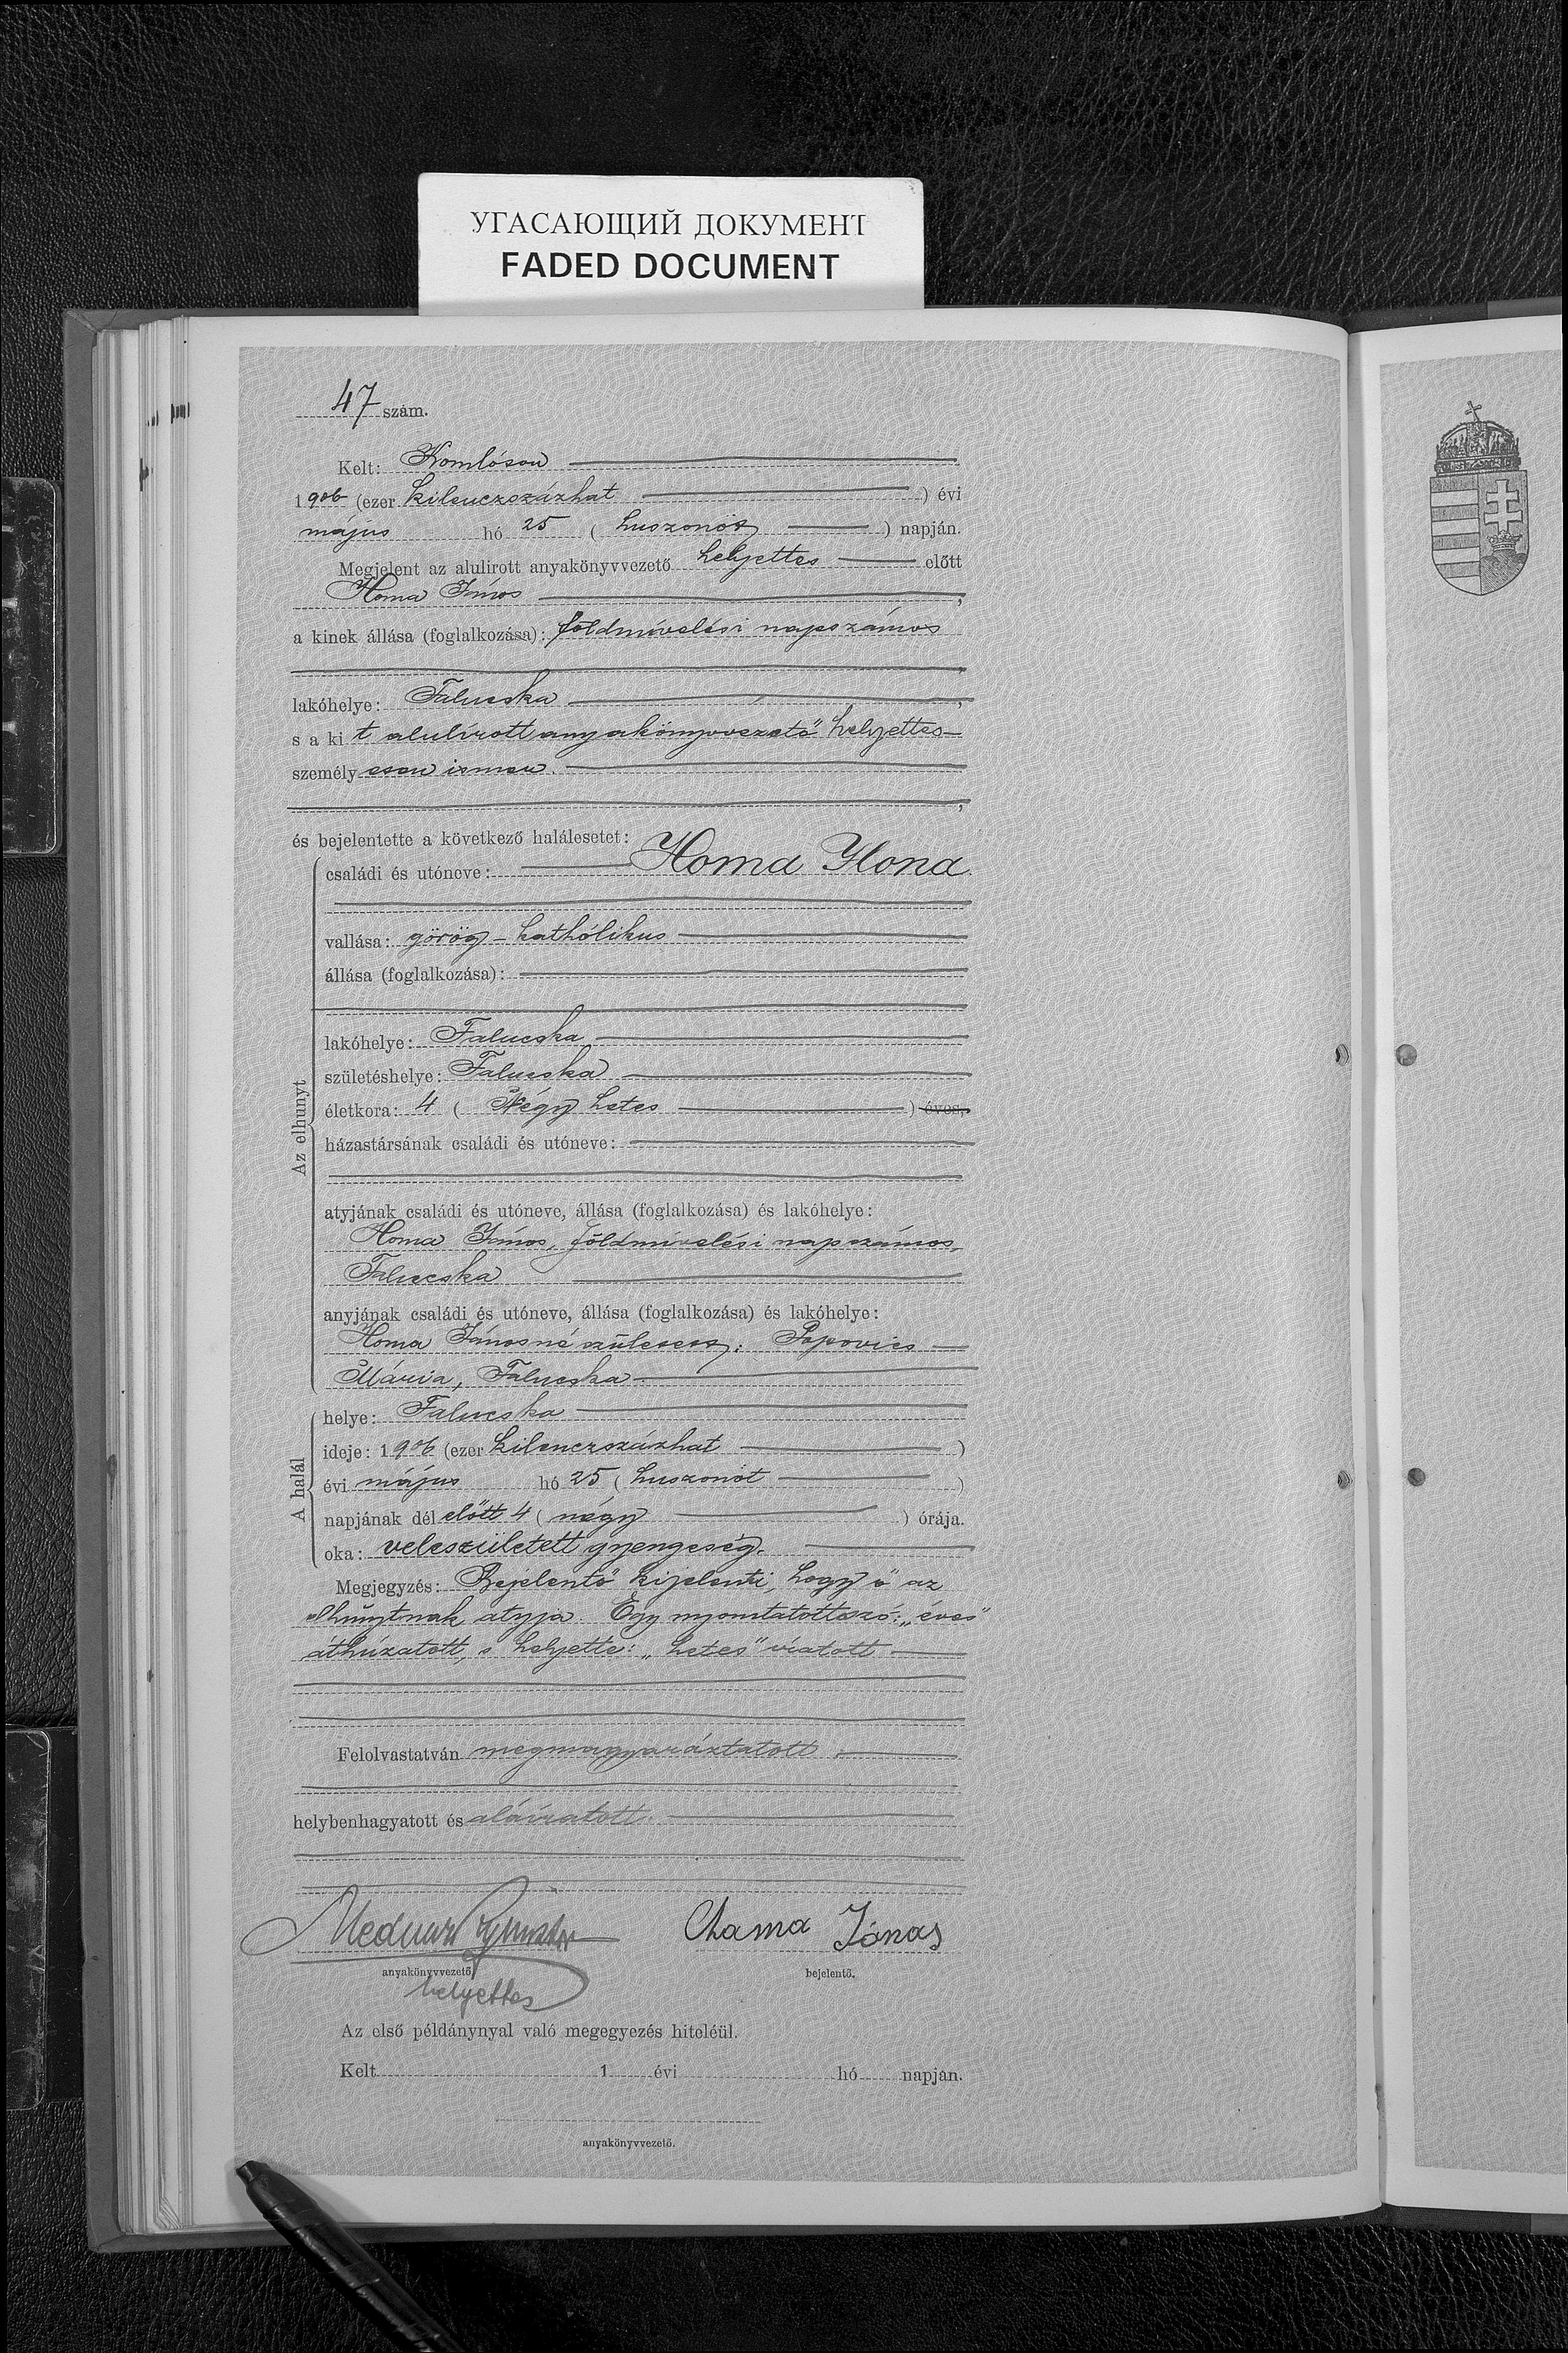 УГАСАЮЩИЙ ДОКУМЕНТ
FADED DOCUMENT
47 szám.
Kelt: Komlóson
1906 (ezer kilenczszázhat) évi
május hó 25 (huszonöt) napján.
Megjelent az alulirott anyakönyvvezető helyettes előtt
Homa János,
a kinek állása (foglalkozása): földmívelési napszámos
lakóhelye: Falucska,
s a kit alulírott anyakönyvvezető helyettes
személyesen ismer.
és bejelentette a következő halálesetet:
családi és utóneve: Homa Ilona
Az elhunyt
vallása: görög-kathólikus
állása (foglalkozása):
lakóhelye: Falucska
születéshelye: Falucska
életkora: 4 (Négy hetes) éves,
házastársának családi és utóneve:
atyjának családi és utóneve, állása (foglalkozása) és lakóhelye:
Homa János, földmívelési napszámos,
Falucska
anyjának családi és utóneve, állása (foglalkozása) és lakóhelye:
Homa Jánosné született: Popovics
Mária, Falucska
A halál
helye: Falucska
ideje: 1906 (ezer kilenczszázhat)
évi május hó 25 (huszonöt)
napjának dél előtt 4 (négy) órája.
oka: veleszületett gyengeség.
Megjegyzés: Bejelentő kijelenti, hogy ő az
elhúnytnak atyja. Egy nyomtatott szó: „éves"
áthúzatott, s helyette: „hetes" víatott
Felolvastatván megmagyaráztatott
helybenhagyatott és aláíratott.
Chama János
anyakönyvvezető
helyettes
bejelentő.
Az első példánynyal való megegyezés hiteléül.
Kelt 1 évi hó napján.
anyakönyvvezető.